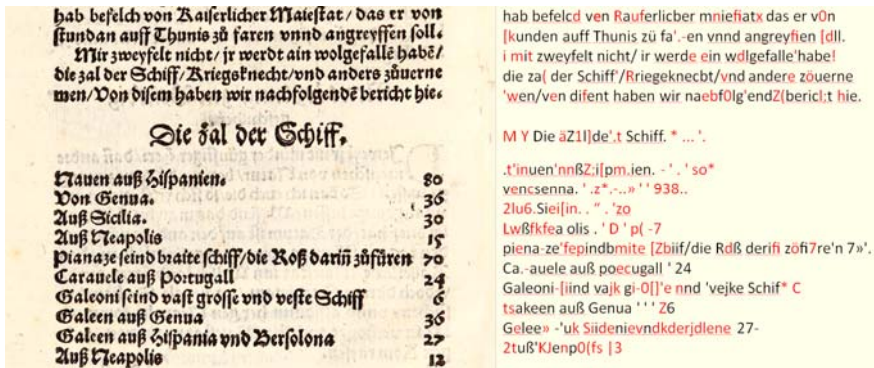 hab befelch von Kaiserlicher Maiestat / das er von
stundan auff Thunis zů faren vnnd angreyffen soll.
Mir zweyfelt nicht / jr werdt ain wolgefallē habē /
die zal der Schiff / Kriegsknecht / vnd anders zůuerne
men / Von disem haben wir nachfolgendē bericht hie.
Die zal der Schiff.
Nauen auß Hispanien. 80
Von Genua. 36
Auß Sicilia. 30
Auß Neapolis 15
Pianaze seind braite schiff / die Roß dariñ zůfüren 70
Carauele auß Portugall 24
Galeoni seind vast grosse vnd veste Schiff 6
Galeen auß Genua 36
Galeen auß Hispania vnd Bersolona 27
Auß Neapolis 12
hab befelcd ven Rauferlicber mniefiatx das er v0n
[kunden auff Thunis zü fa'.-en vnnd angreyfien [dll.
i mit zweyfelt nicht/ ir werde ein wdlgefalle'habe!
die za( der Schiff'/Rriegeknecbt/vnd andere zöuerne
'wen/ven difent haben wir naebf0lg'endZ(bericl;t hie.
M Y Die äZ1l]de'.t Schiff. * ... '.
.t'inuen'nnßZ;i[pm.ien. - ' . ' so*
vencsenna. ' .z*.-..» ' ' 938..
2lu6.Siei[in. . " . 'zo
Lwßfkfea olis . ' D ' p( -7
piena-ze'fepindbmite [Zbiif/die Rdß derifi zöfi7re'n 7»'.
Ca.-auele auß poecugall ' 24
Galeoni-[iind vajk gi-0[]'e nnd 'vejke Schif* C
tsakeen auß Genua ' ' ' Z6
Gelee» -'uk Siidenievndkderjdlene 27-
2tuß'KJenp0(fs |3